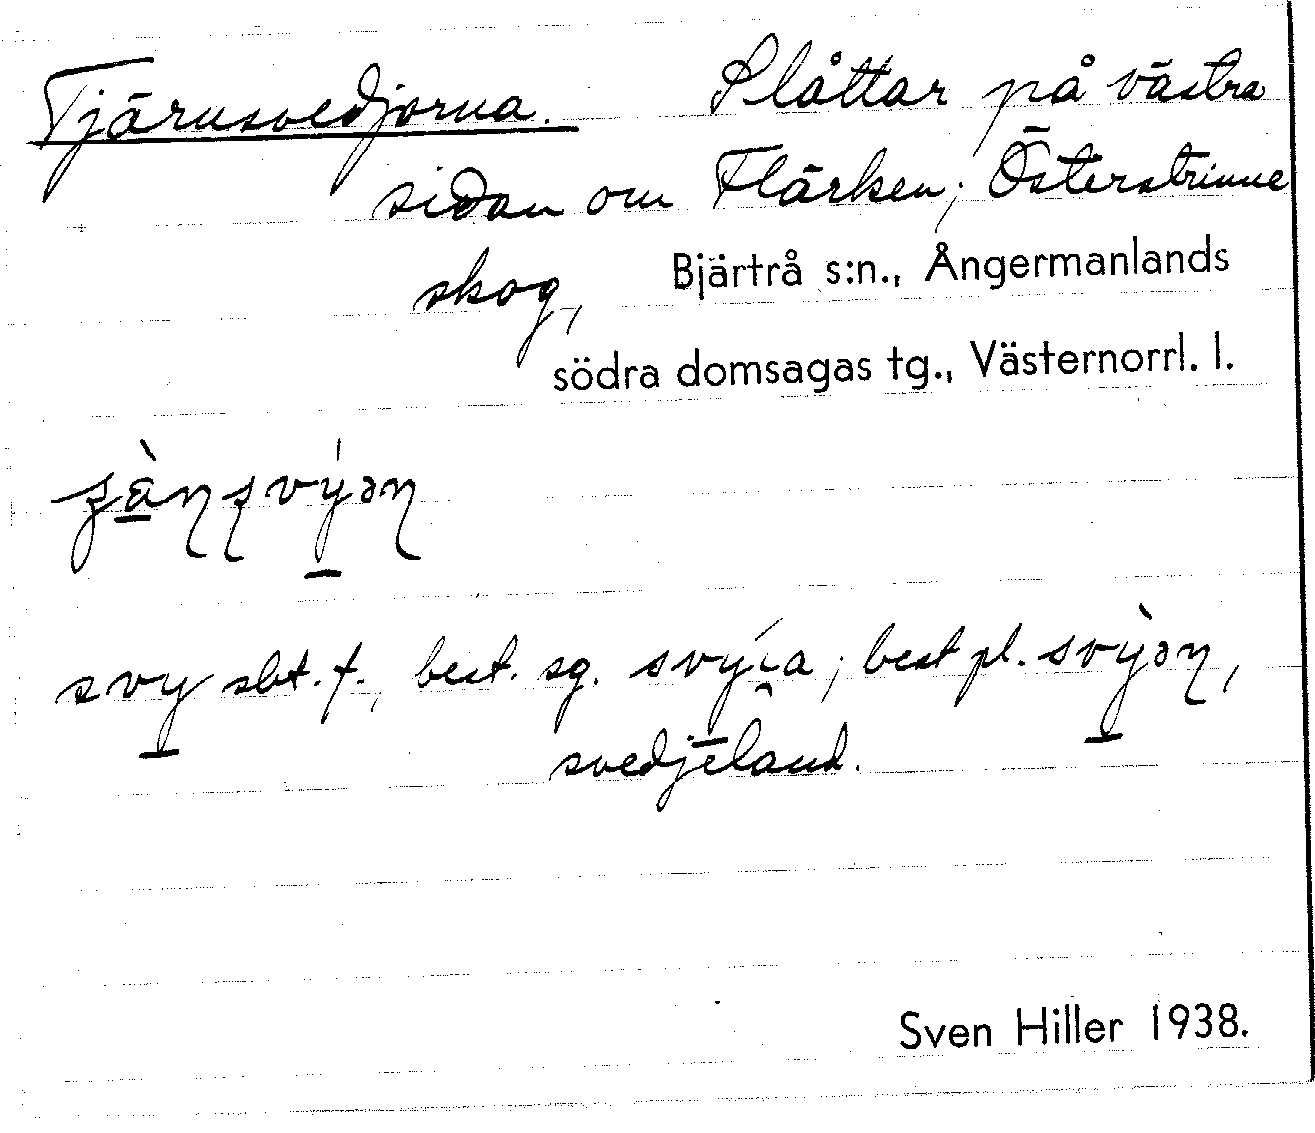 Tjärnsvedjorna. Slåttar på västra
sidan om Flärken; Österstrinne
skog, Bjärtrå s:n., Ångermanlands
södra domsagas tg., Västernorrl. l.
svy sbt. f., best. sg. svýi̯a; best pl. svỳən,
svedjeland.
Sven Hiller 1938.